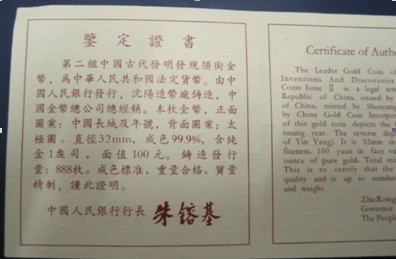 鑒定證書
第二組中國古代發明發現領銜金
幣,為中華人民共和國法定貨幣。由中
國人民銀行發行,沈陽造幣廠鑄造,中
國金幣總公司總經銷。本枚金幣,正面
圖案:中國長城及年號,背面圖案:太
極圖。直徑32mm,成色99.9%,含純
金1盎司,面值100元。鑄造發行
量:888枚。成色標准,重量合格,質量
精制,謹此證明。
中國人民銀行行長 朱鎔基
Certificate of Auth
The Leader Gold Coin of
Inventions And Discoveries
Coins Issue II is a legal ten
Republic of China, issued by
of China, minted by Shenyang
by China Gold Coin Incorpor
of this gold coin depicts the
issuing year. The reverse dep
of Yin Yang). It is 32mm in
fineness, 100 yuan in face va
ounce of pure gold. Total ma
This is to certify that the
quality is up to standar
and weight.
Zhu Rong
Governor
The People